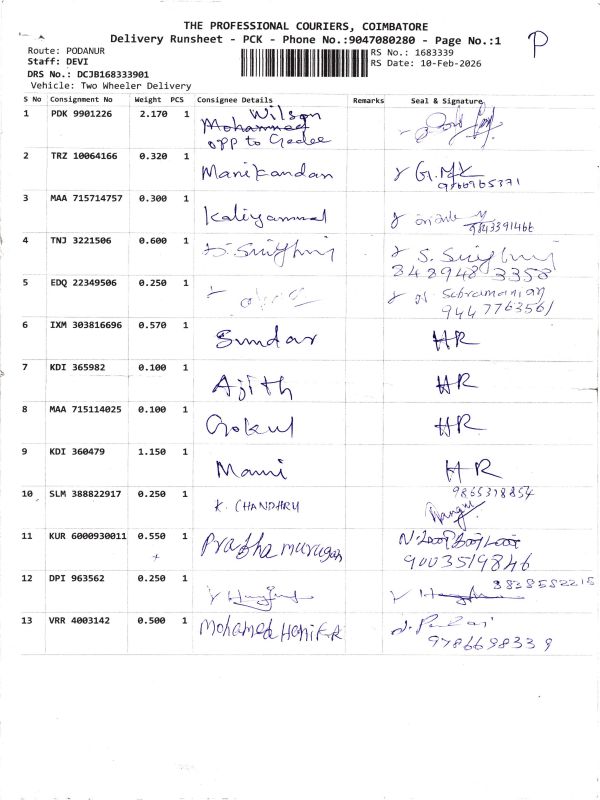 THE PROFESSIONAL COURIERS, COIMBATORE
Delivery Runsheet - PCK - Phone No.:9047080280 - Page No.:1
P
Route: PODANUR
RS No.: 1683339
Staff: DEVI
RS Date: 10-Feb-2026
DRS No.: DCJB168333901
Vehicle: Two Wheeler Delivery
S No Consignment No Weight PCS Consignee Details Remarks Seal & Signature
1 PDK 9901226 2.170 1 Wilson
Mohammed
opp to
2 TRZ 10064166 0.320 1 Manikandan G.MK
3 MAA 715714757 0.300 1 Kaliyammal
9843391466
4 TNJ 3221506 0.600 1 S.
342948 3358
5 EDQ 22349506 0.250 1
9447763561
6 IXM 303816696 0.570 1 Sundar HR
7 KDI 365982 0.100 1 Ajith HR
8 MAA 715114025 0.100 1 Gokul HR
9 KDI 360479 1.150 1 Mani HR
10 SLM 388822917 0.250 1 K. CHANDRU 9865378854
11 KUR 6000930011 0.550 1 Prabha murugan
9003519846
12 DPI 963562 0.250 1
13 VRR 4003142 0.500 1 Mohamed Hanifa
9786698339